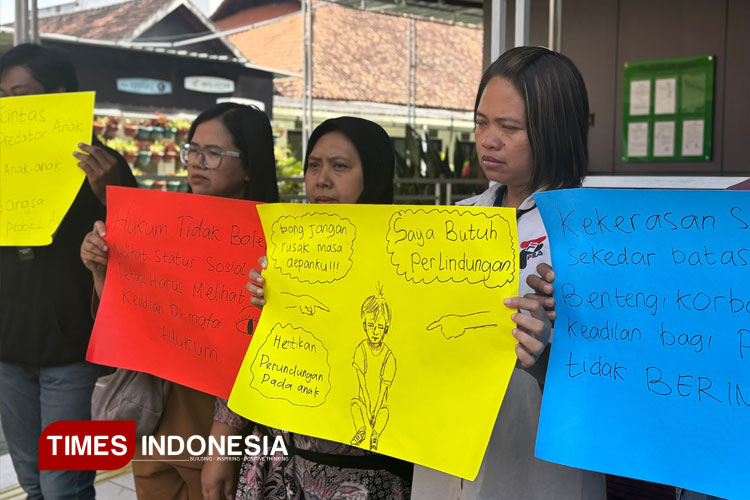 untas
Predator Anak
Anak-anak
angsa
Pedofil
Hukum Tidak Bole
Melihat Status Sosial
Tetap Harus Melihat
Keadilan Dimata
Hukum
Bong Jangan
rusak masa
depanku!!!
Saya Butuh
PerLindungan
Hentikan
Perundungan
Pada anak
Kekerasan S
sekedar batas
Bentengi korba
Keadilan bagi P
tidak BERIN
TIMES INDONESIA
BUILDING - INSPIRING - POSITIVE THINKING